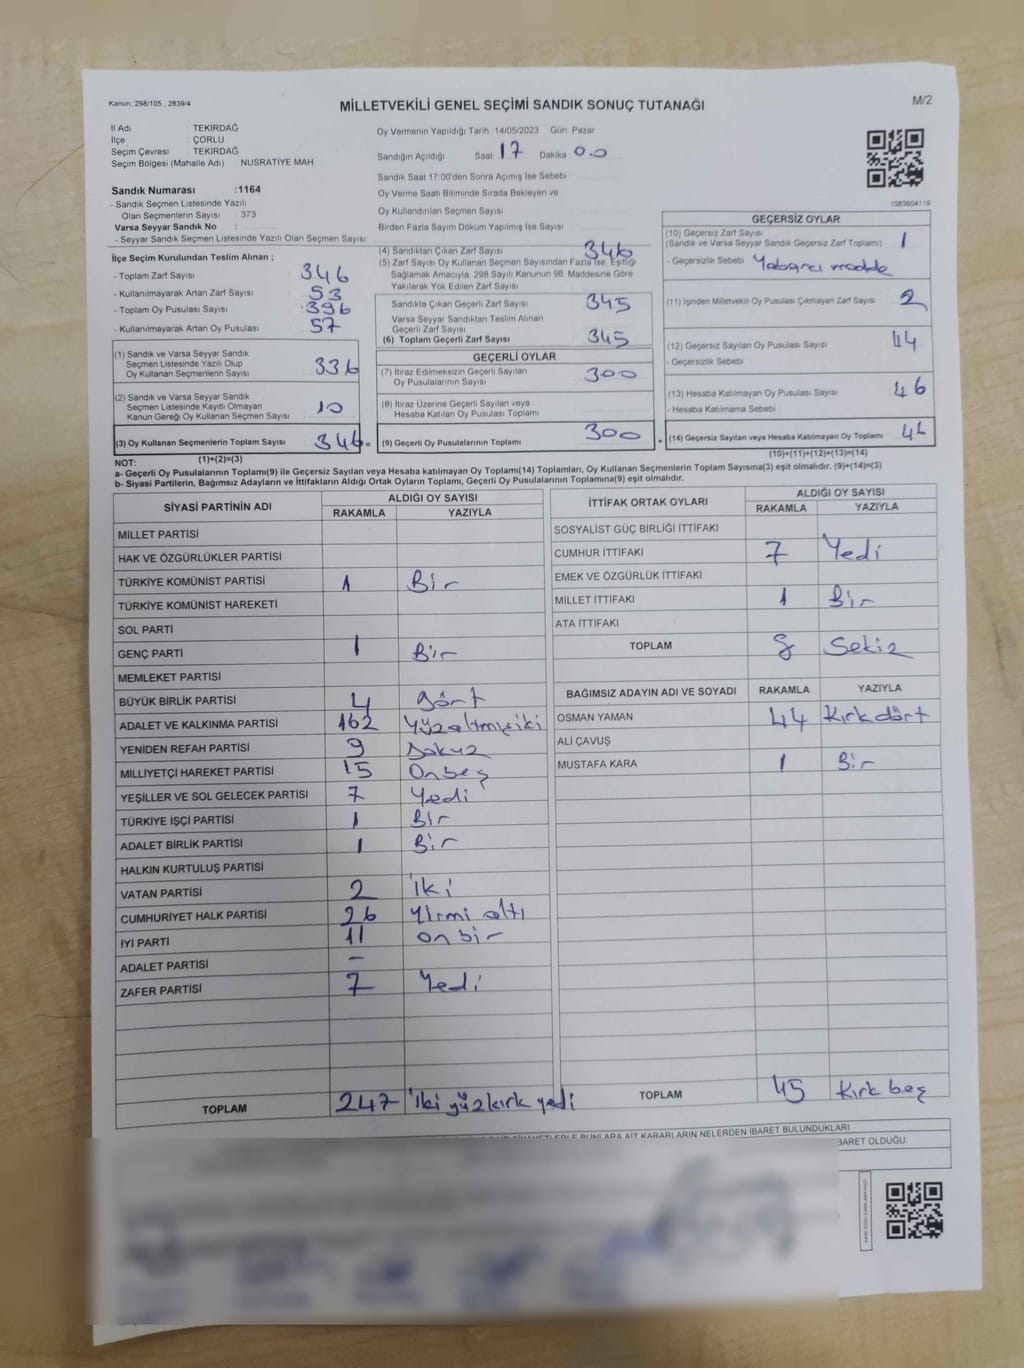 Kanun: 298/105 , 2839/4
MİLLETVEKİLİ GENEL SEÇİMİ SANDIK SONUÇ TUTANAĞI
M/2
İl Adı : TEKİRDAĞ
İlçe : ÇORLU
Seçim Çevresi : TEKİRDAĞ
Seçim Bölgesi (Mahalle Adı) : NUSRATİYE MAH.
Sandık Numarası :1164
- Sandık Seçmen Listesinde Yazılı
Olan Seçmenlerin Sayısı : 373
Varsa Seyyar Sandık No :
- Seyyar Sandık Seçmen Listesinde Yazılı Olan Seçmen Sayısı:
Oy Vermenin Yapıldığı Tarih :14/05/2023 Gün: Pazar
Sandığın Açıldığı Saat 17 Dakika 00
Sandık Saat 17:00'den Sonra Açılmış İse Sebebi
Oy Verme Saati Bitiminde Sırada Bekleyen ve
Oy Kullandırılan Seçmen Sayısı
Birden Fazla Sayım Döküm Yapılmış İse Sayısı :
1083604119
İlçe Seçim Kurulundan Teslim Alınan ;
- Toplam Zarf Sayısı : 346
- Kullanılmayarak Artan Zarf Sayısı : 53
- Toplam Oy Pusulası Sayısı : 396
- Kullanılmayarak Artan Oy Pusulası : 57
(1) Sandık ve Varsa Seyyar Sandık
Seçmen Listesinde Yazılı Olup
Oy Kullanan Seçmenlerin Sayısı : 336
(2) Sandık ve Varsa Seyyar Sandık
Seçmen Listesinde Kayıtlı Olmayan
Kanun Gereği Oy Kullanan Seçmen Sayısı : 10
(3) Oy Kullanan Seçmenlerin Toplam Sayısı : 346=
(1)+(2)=(3)
(4) Sandıktan Çıkan Zarf Sayısı : 346
(5) Zarf Sayısı Oy Kullanan Seçmen Sayısından Fazla İse, Eşitliği
Sağlamak Amacıyla, 298 Sayılı Kanunun 98. Maddesine Göre
Yakılarak Yok Edilen Zarf Sayısı :
Sandıkta Çıkan Geçerli Zarf Sayısı : 345
Varsa Seyyar Sandıktan Teslim Alınan
Geçerli Zarf Sayısı
(6) Toplam Geçerli Zarf Sayısı : 345
GEÇERLİ OYLAR
(7) İtiraz Edilmeksizin Geçerli Sayılan
Oy Pusulalarının Sayısı : 300
(8) İtiraz Üzerine Geçerli Sayılan veya
Hesaba Katılan Oy Pusulası Toplamı :
(9) Geçerli Oy Pusulalarının Toplamı : 300 +
GEÇERSİZ OYLAR
(10) Geçersiz Zarf Sayısı
(Sandık ve Varsa Seyyar Sandık Geçersiz Zarf Toplamı) : 1
- Geçersizlik Sebebi : Yabancı madde
(11) İçinden Milletvekili Oy Pusulası Çıkmayan Zarf Sayısı : 2
(12) Geçersiz Sayılan Oy Pusulası Sayısı : 44
- Geçersizlik Sebebi :
(13) Hesaba Katılmayan Oy Pusulası Sayısı : 46
- Hesaba Katılmama Sebebi :
(14) Geçersiz Sayılan veya Hesaba Katılmayan Oy Toplamı :
(10)+(11)+(12)+(13)=(14)
NOT:
a- Geçerli Oy Pusulalarının Toplamı(9) ile Geçersiz Sayılan veya Hesaba katılmayan Oy Toplamı(14) Toplamları, Oy Kullanan Seçmenlerin Toplam Sayısına(3) eşit olmalıdır. (9)+(14)=(3)
b- Siyasi Partilerin, Bağımsız Adayların ve İttifakların Aldığı Ortak Oyların Toplamı, Geçerli Oy Pusulalarının Toplamına(9) eşit olmalıdır.
SİYASİ PARTİNİN ADI ALDIĞI OY SAYISI
RAKAMLA YAZIYLA
MİLLET PARTİSİ
HAK VE ÖZGÜRLÜKLER PARTİSİ
TÜRKİYE KOMÜNİST PARTİSİ 1 Bir
TÜRKİYE KOMÜNİST HAREKETİ
SOL PARTİ
GENÇ PARTİ 1 Bir
MEMLEKET PARTİSİ
BÜYÜK BİRLİK PARTİSİ 4 dört
ADALET VE KALKINMA PARTİSİ 162 Yüzaltmışiki
YENİDEN REFAH PARTİSİ 9 Dokuz
MİLLİYETÇİ HAREKET PARTİSİ 15 Onbeş
YEŞİLLER VE SOL GELECEK PARTİSİ 7 Yedi
TÜRKİYE İŞÇİ PARTİSİ 1 Bir
ADALET BİRLİK PARTİSİ 1 Bir
HALKIN KURTULUŞ PARTİSİ
VATAN PARTİSİ 2 iki
CUMHURİYET HALK PARTİSİ 26 Yirmi altı
İYİ PARTİ 11 on bir
ADALET PARTİSİ -
ZAFER PARTİSİ 7 Yedi
TOPLAM 247 iki yüzkırk yedi
İTTİFAK ORTAK OYLARI ALDIĞI OY SAYISI
RAKAMLA YAZIYLA
SOSYALİST GÜÇ BİRLİĞİ İTTİFAKI
CUMHUR İTTİFAKI 7 Yedi
EMEK VE ÖZGÜRLÜK İTTİFAKI
MİLLET İTTİFAKI 1 Bir
ATA İTTİFAKI
TOPLAM 8 Sekiz
BAĞIMSIZ ADAYIN ADI VE SOYADI RAKAMLA YAZIYLA
OSMAN YAMAN 44 Kırkdört
ALİ ÇAVUŞ
MUSTAFA KARA 1 Bir
TOPLAM 45 Kırk beş
BUNLARA AİT KARARLARIN NELERDEN İBARET BULUNDUKLARI
İBARET OLDUĞU